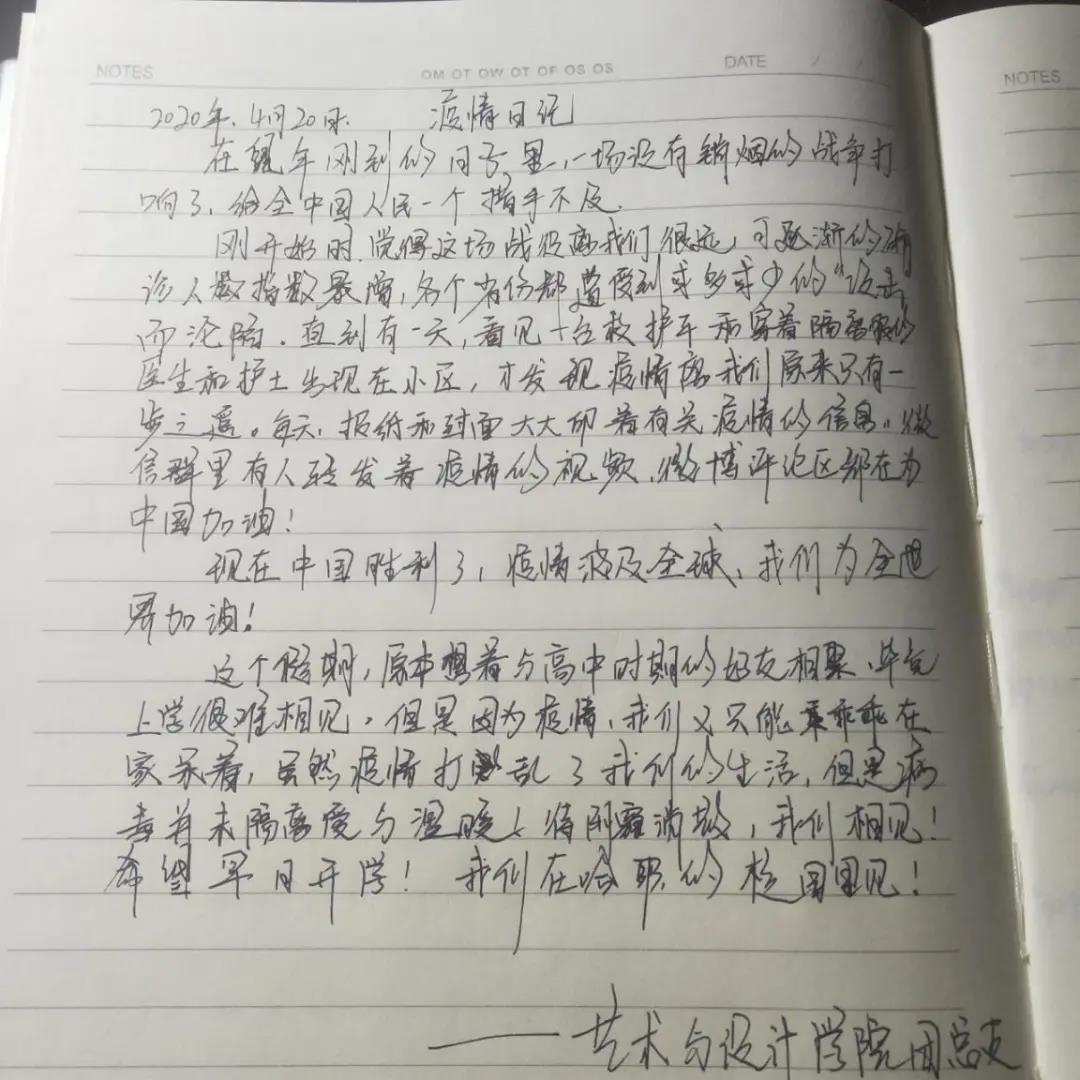 NOTES OM OT OW OT OF OS OS DATE / / NOTES
2020年.4月20日. 疫情日记
在鼠年刚到的日子里,一场没有硝烟的战争打
响了,给全中国人民一个措手不及.
刚开始时,觉得这场战役离我们很远,可逐渐的确
诊人数指数暴增,各个省份都遭受到或多或少的"攻击"
而沦陷.直到有一天,看见十台救护车和穿着隔离服的
医生和护士出现在小区,才发现疫情离我们原来只有一
步之遥。每天,报纸和封面大大印着有关疫情的信息,微
信群里有人转发着疫情的视频,微博评论区都在为
中国加油!
现在中国胜利了,疫情波及全球,我们为全世
界加油!
这个假期,原本想着与高中时期的好友相聚,毕竟
上学很难相见,但是因为疫情,我们又只能乖乖在
家呆着,虽然疫情打乱了我们的生活,但是病
毒并未隔离爱与温暖!待阴霾消散,我们相见!
希望早日开学! 我们在哈职的校园里见!
——艺术与设计学院团总支